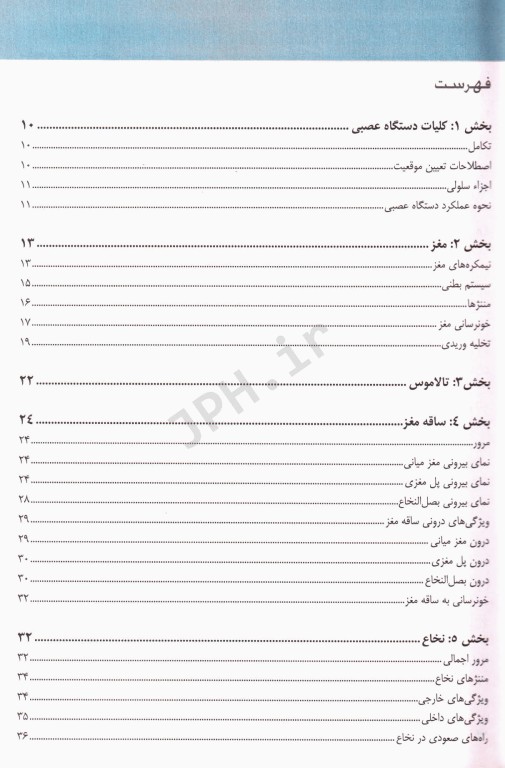 فهرست
بخش ۱: کلیات دستگاه عصبی ........ ۱۰
تکامل ........ ۱۰
اصطلاحات تعیین موقعیت ........ ۱۰
اجزاء سلولی ........ ۱۱
نحوه عملکرد دستگاه عصبی ........ ۱۱
بخش ۲: مغز ........ ۱۳
نیمکره‌های مغز ........ ۱۳
سیستم بطنی ........ ۱۵
مننژها ........ ۱۶
خونرسانی مغز ........ ۱۷
تخلیه وریدی ........ ۱۹
بخش۳: تالاموس ........ ۲۲
بخش ٤: ساقه مغز ........ ۲٤
مرور ........ ۲۴
نمای بیرونی مغز میانی ........ ۲۴
نمای بیرونی پل مغزی ........ ۲۴
نمای بیرونی بصل‌النخاع ........ ۲۸
ویژگی‌های درونی ساقه مغز ........ ۲۹
درون مغز میانی ........ ۲۹
درون پل مغزی ........ ۳۰
درون بصل‌النخاع ........ ۳۰
خونرسانی به ساقه مغز ........ ۳۲
بخش ٥: نخاع ........ ۳۲
مرور اجمالی ........ ۳۲
مننژهای نخاع ........ ۳۴
ویژگی‌های خارجی ........ ۳۴
ویژگی‌های داخلی ........ ۳۵
راه‌های صعودی در نخاع ........ ۳۶
JPH.ir